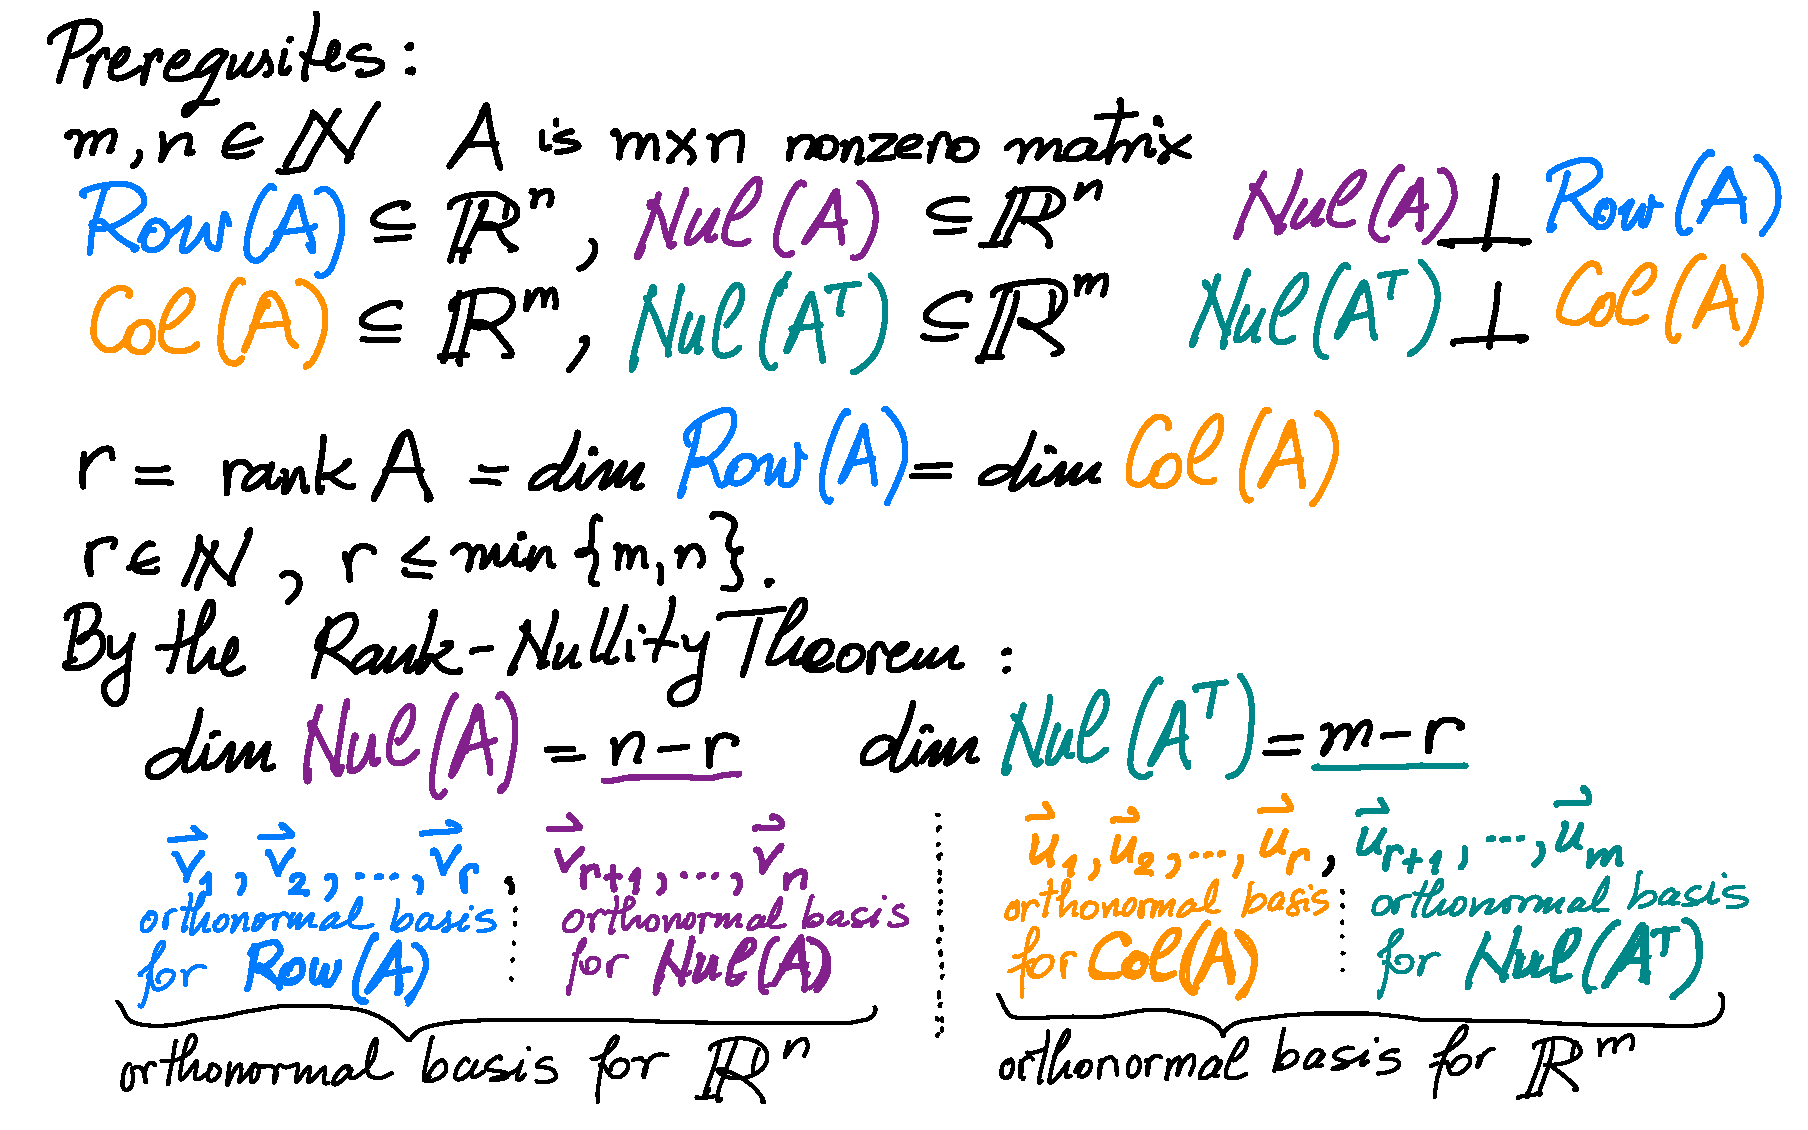 Prerequsites:
m, n ∈ ℕ A is m×n nonzero matrix
Row(A) ⊆ ℝⁿ, Nul(A) ⊆ ℝⁿ Nul(A) ⊥ Row(A)
Col(A) ⊆ ℝᵐ, Nul(Aᵀ) ⊆ ℝᵐ Nul(Aᵀ) ⊥ Col(A)
r = rank A = dim Row(A) = dim Col(A)
r ∈ ℕ, r ≤ min {m, n}.
By the Rank-Nullity Theorem:
dim Nul(A) = n-r dim Nul(Aᵀ) = m-r
v⃗₁, v⃗₂, ..., v⃗ᵣ, v⃗ᵣ₊₁, ..., v⃗ₙ u⃗₁, u⃗₂, ..., u⃗ᵣ, u⃗ᵣ₊₁, ..., u⃗ₘ
orthonormal basis orthonormal basis orthonormal basis orthonormal basis
for Row(A) for Nul(A) for Col(A) for Nul(Aᵀ)
orthonormal basis for ℝⁿ orthonormal basis for ℝᵐ